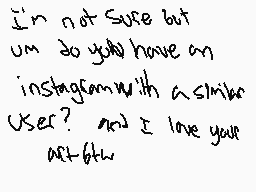 i'm not sure but
um do you have an
instagram with a similar
user? and I love your
art btw